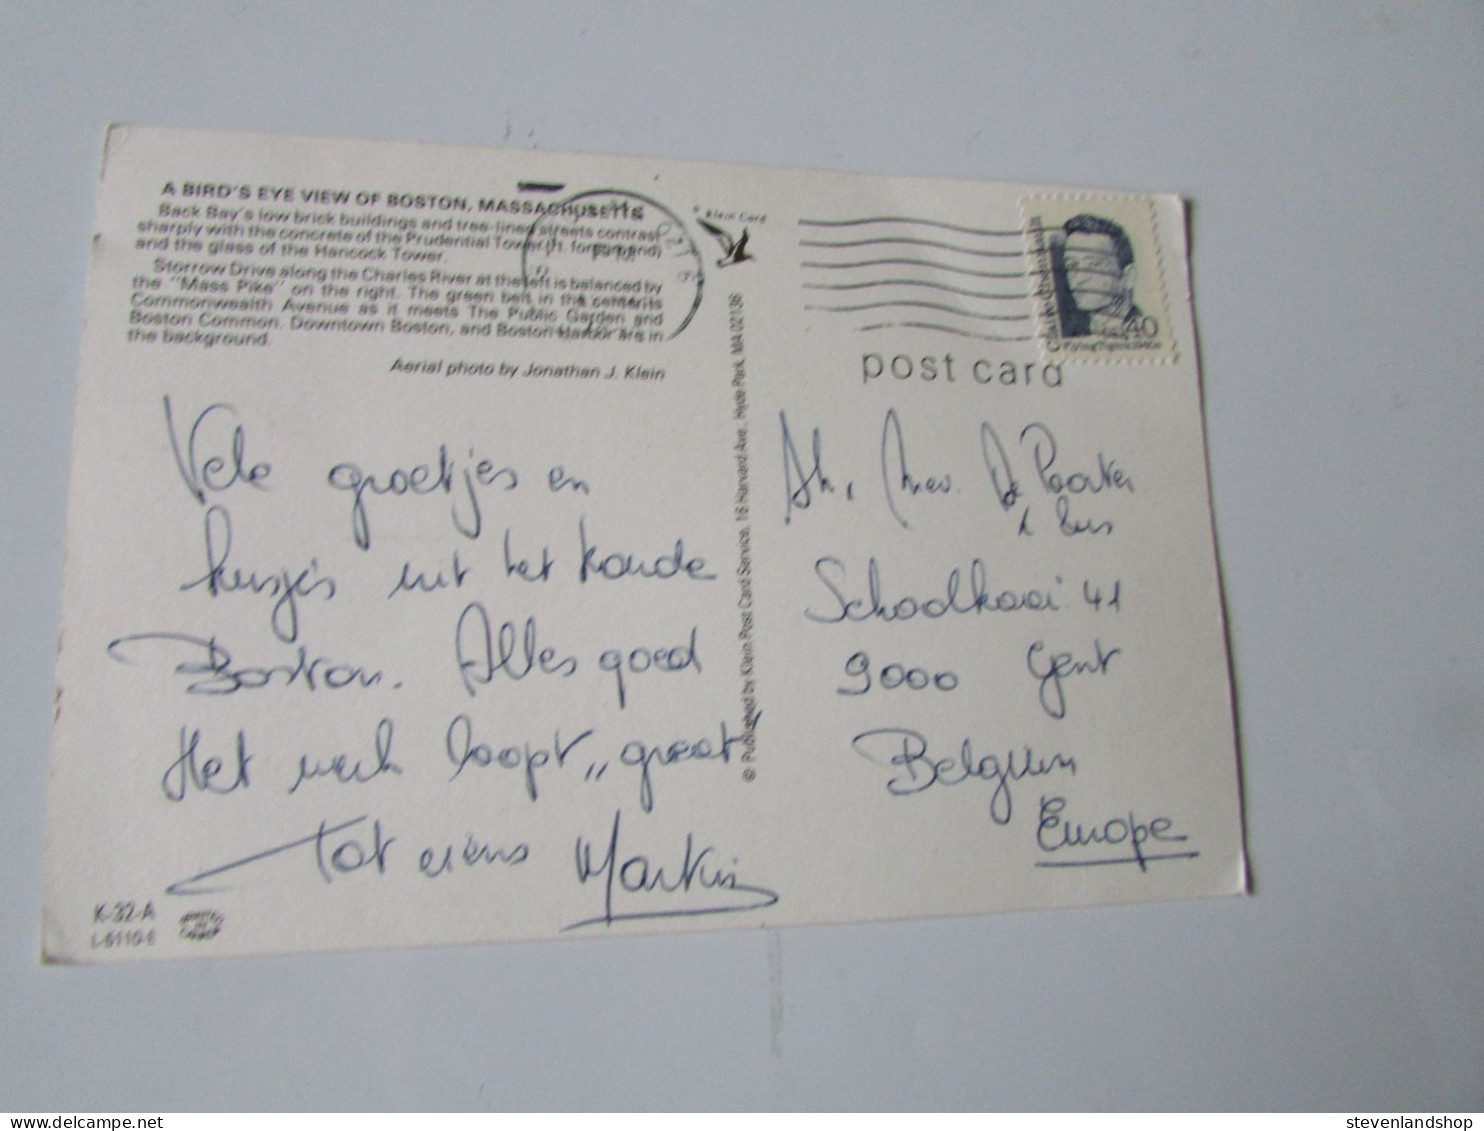 A BIRD'S EYE VIEW OF BOSTON, MASSACHUSETTS
Back Bay's low brick buildings and tree-lined streets contrast
sharply with the concrete of the Prudential Tower (rt. foreground)
and the glass of the Hancock Tower.
Storrow Drive along the Charles River at the left is balanced by
the "Mass Pike" on the right. The green belt in the center is
Commonwealth Avenue as it meets The Public Garden and
Boston Common. Downtown Boston, and Boston Harbor are in
the background.
Aerial photo by Jonathan J. Klein
Vele groetjes en
kusjes uit het koude
Boston. Alles goed
Het werk loopt „great"
Tot ziens Martin
K-32-A
L-6110-E
© Published by Klein Post Card Service, 16 Harvard Ave., Hyde Park, MA 02136
Klein Card
Claire Chennault
40
Flying Tigers 1940s
post card
Dh. Mev. De Poorter
Schoolkaai 41
9000 Gent
Belgium
Europe
stevenlandshop